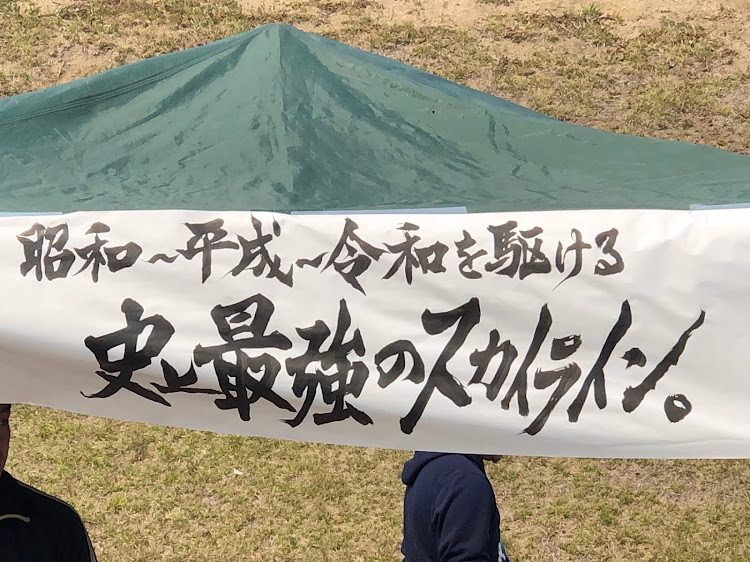 昭和～平成～令和を駆ける
史上最強のスカイライン。